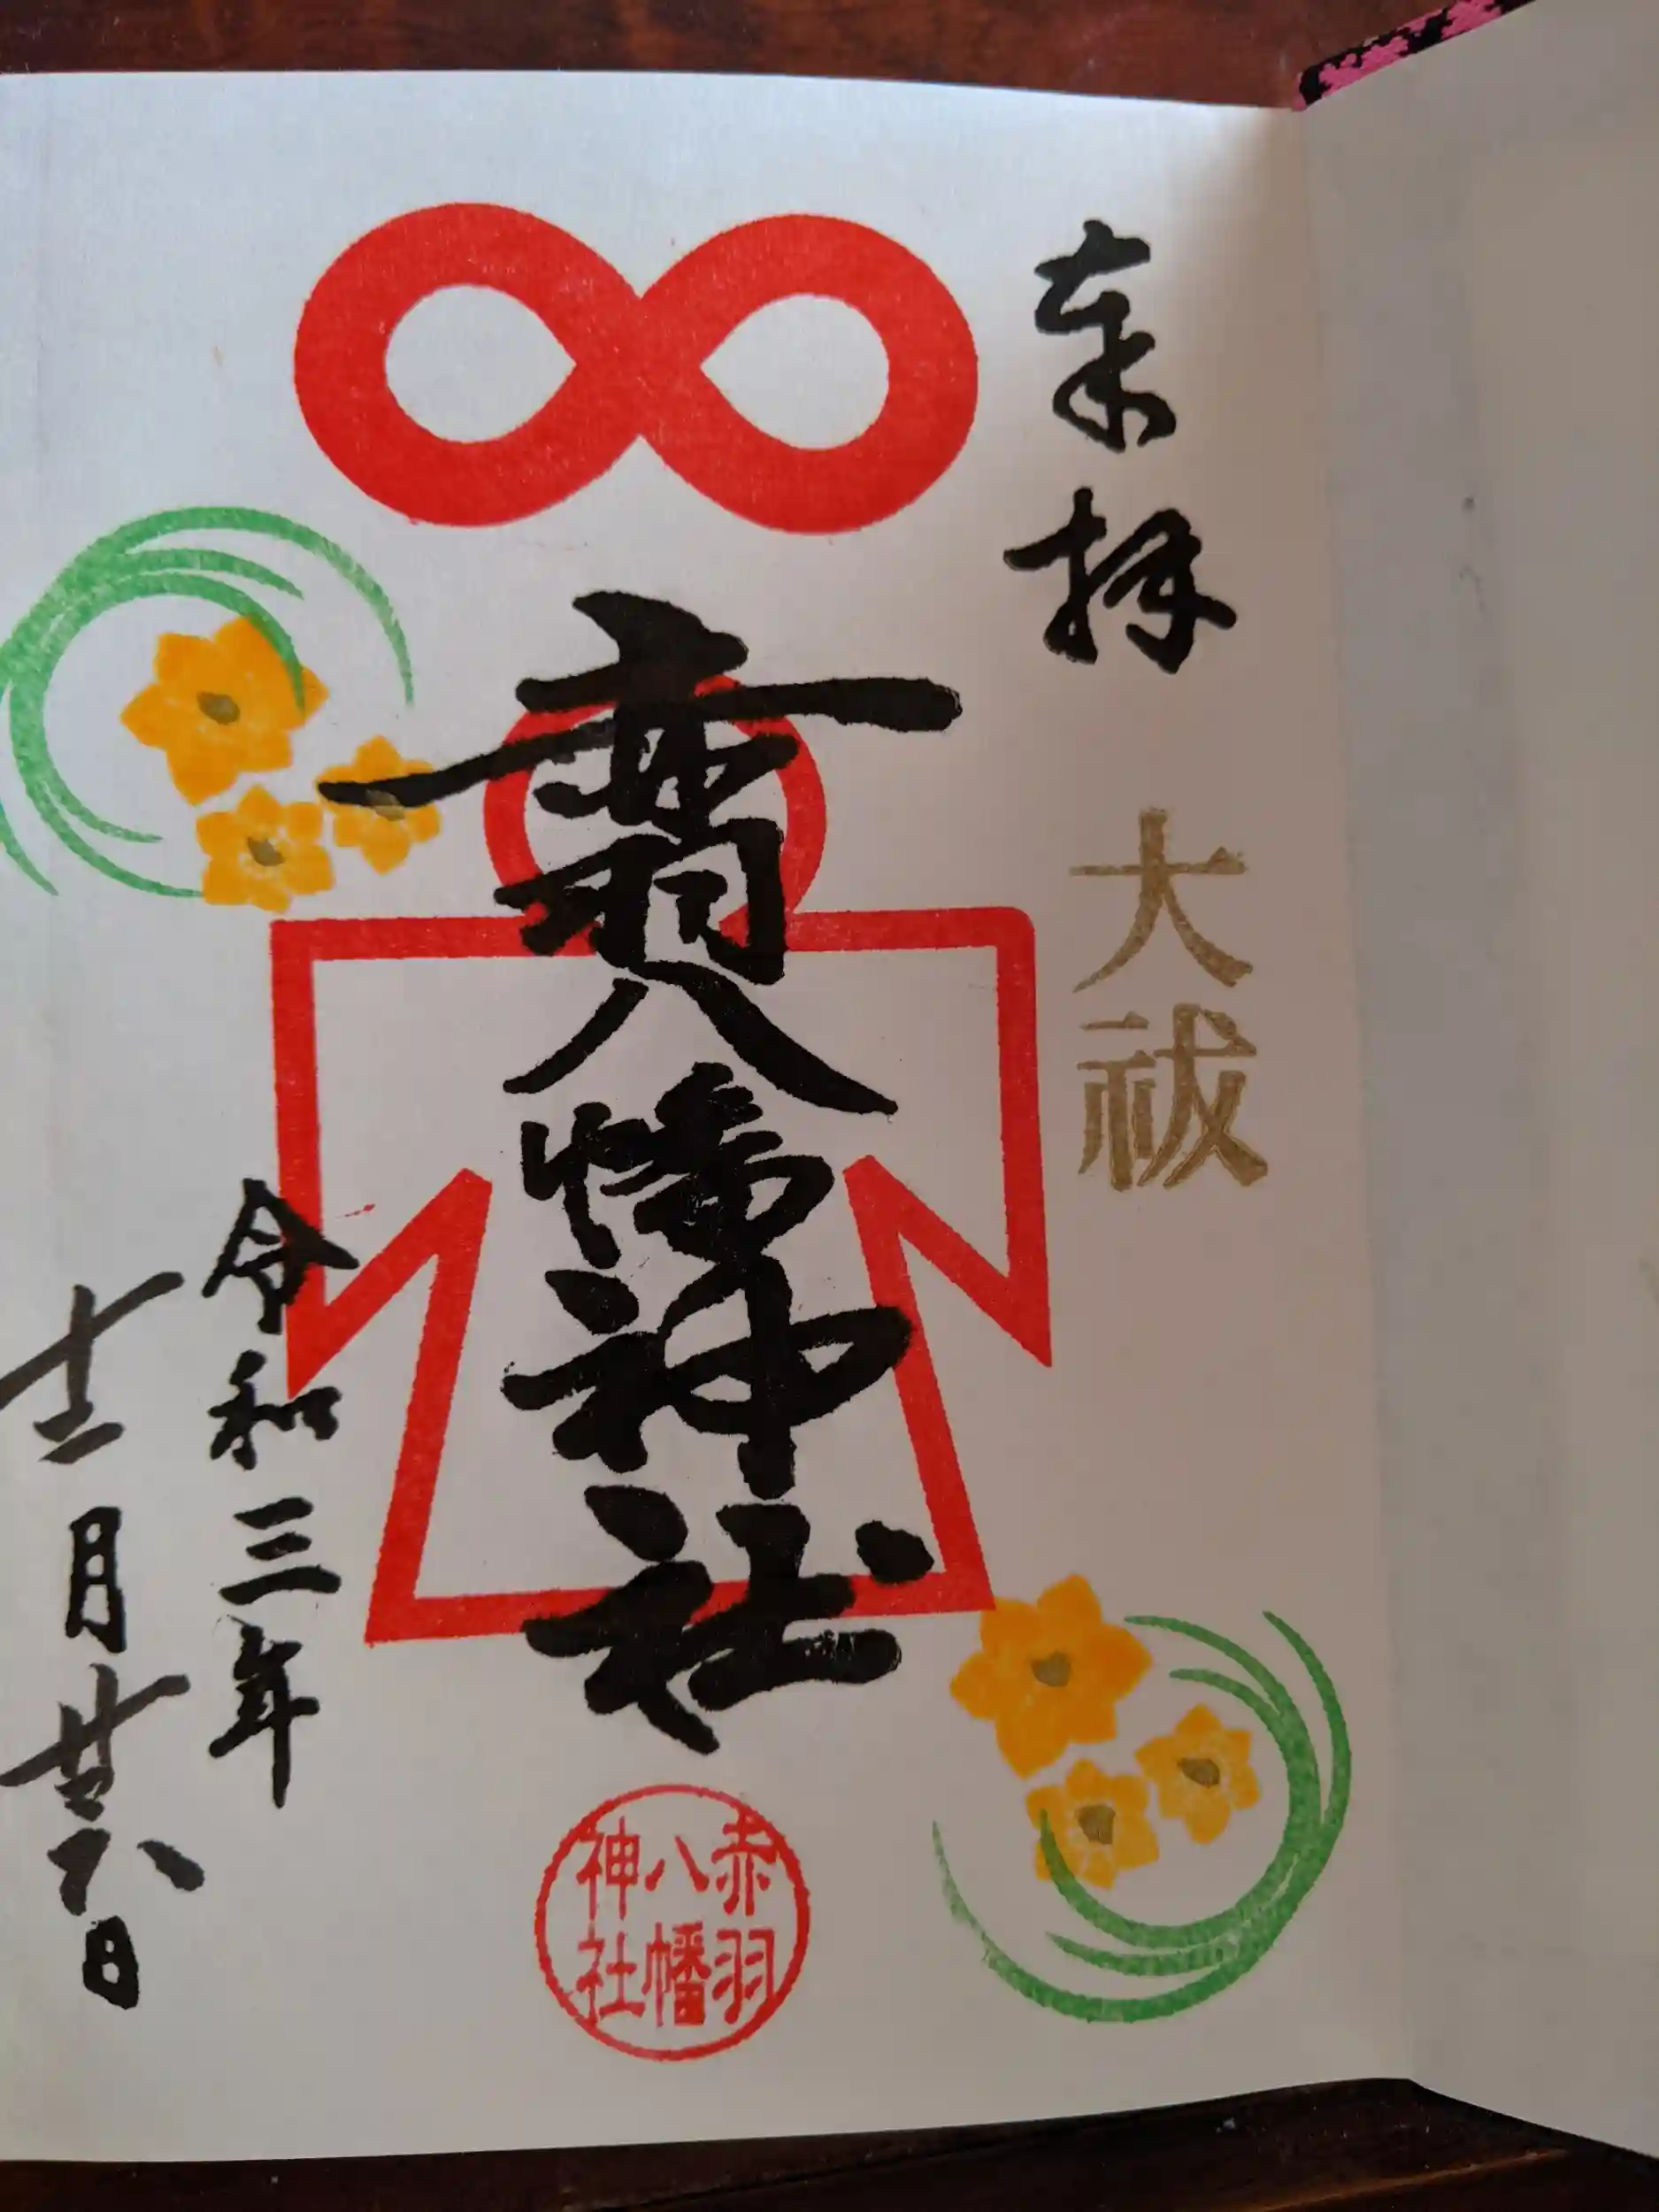 奉拝
大祓
赤羽八幡神社
赤羽
八幡
神社
令和三年
十二月廿八日